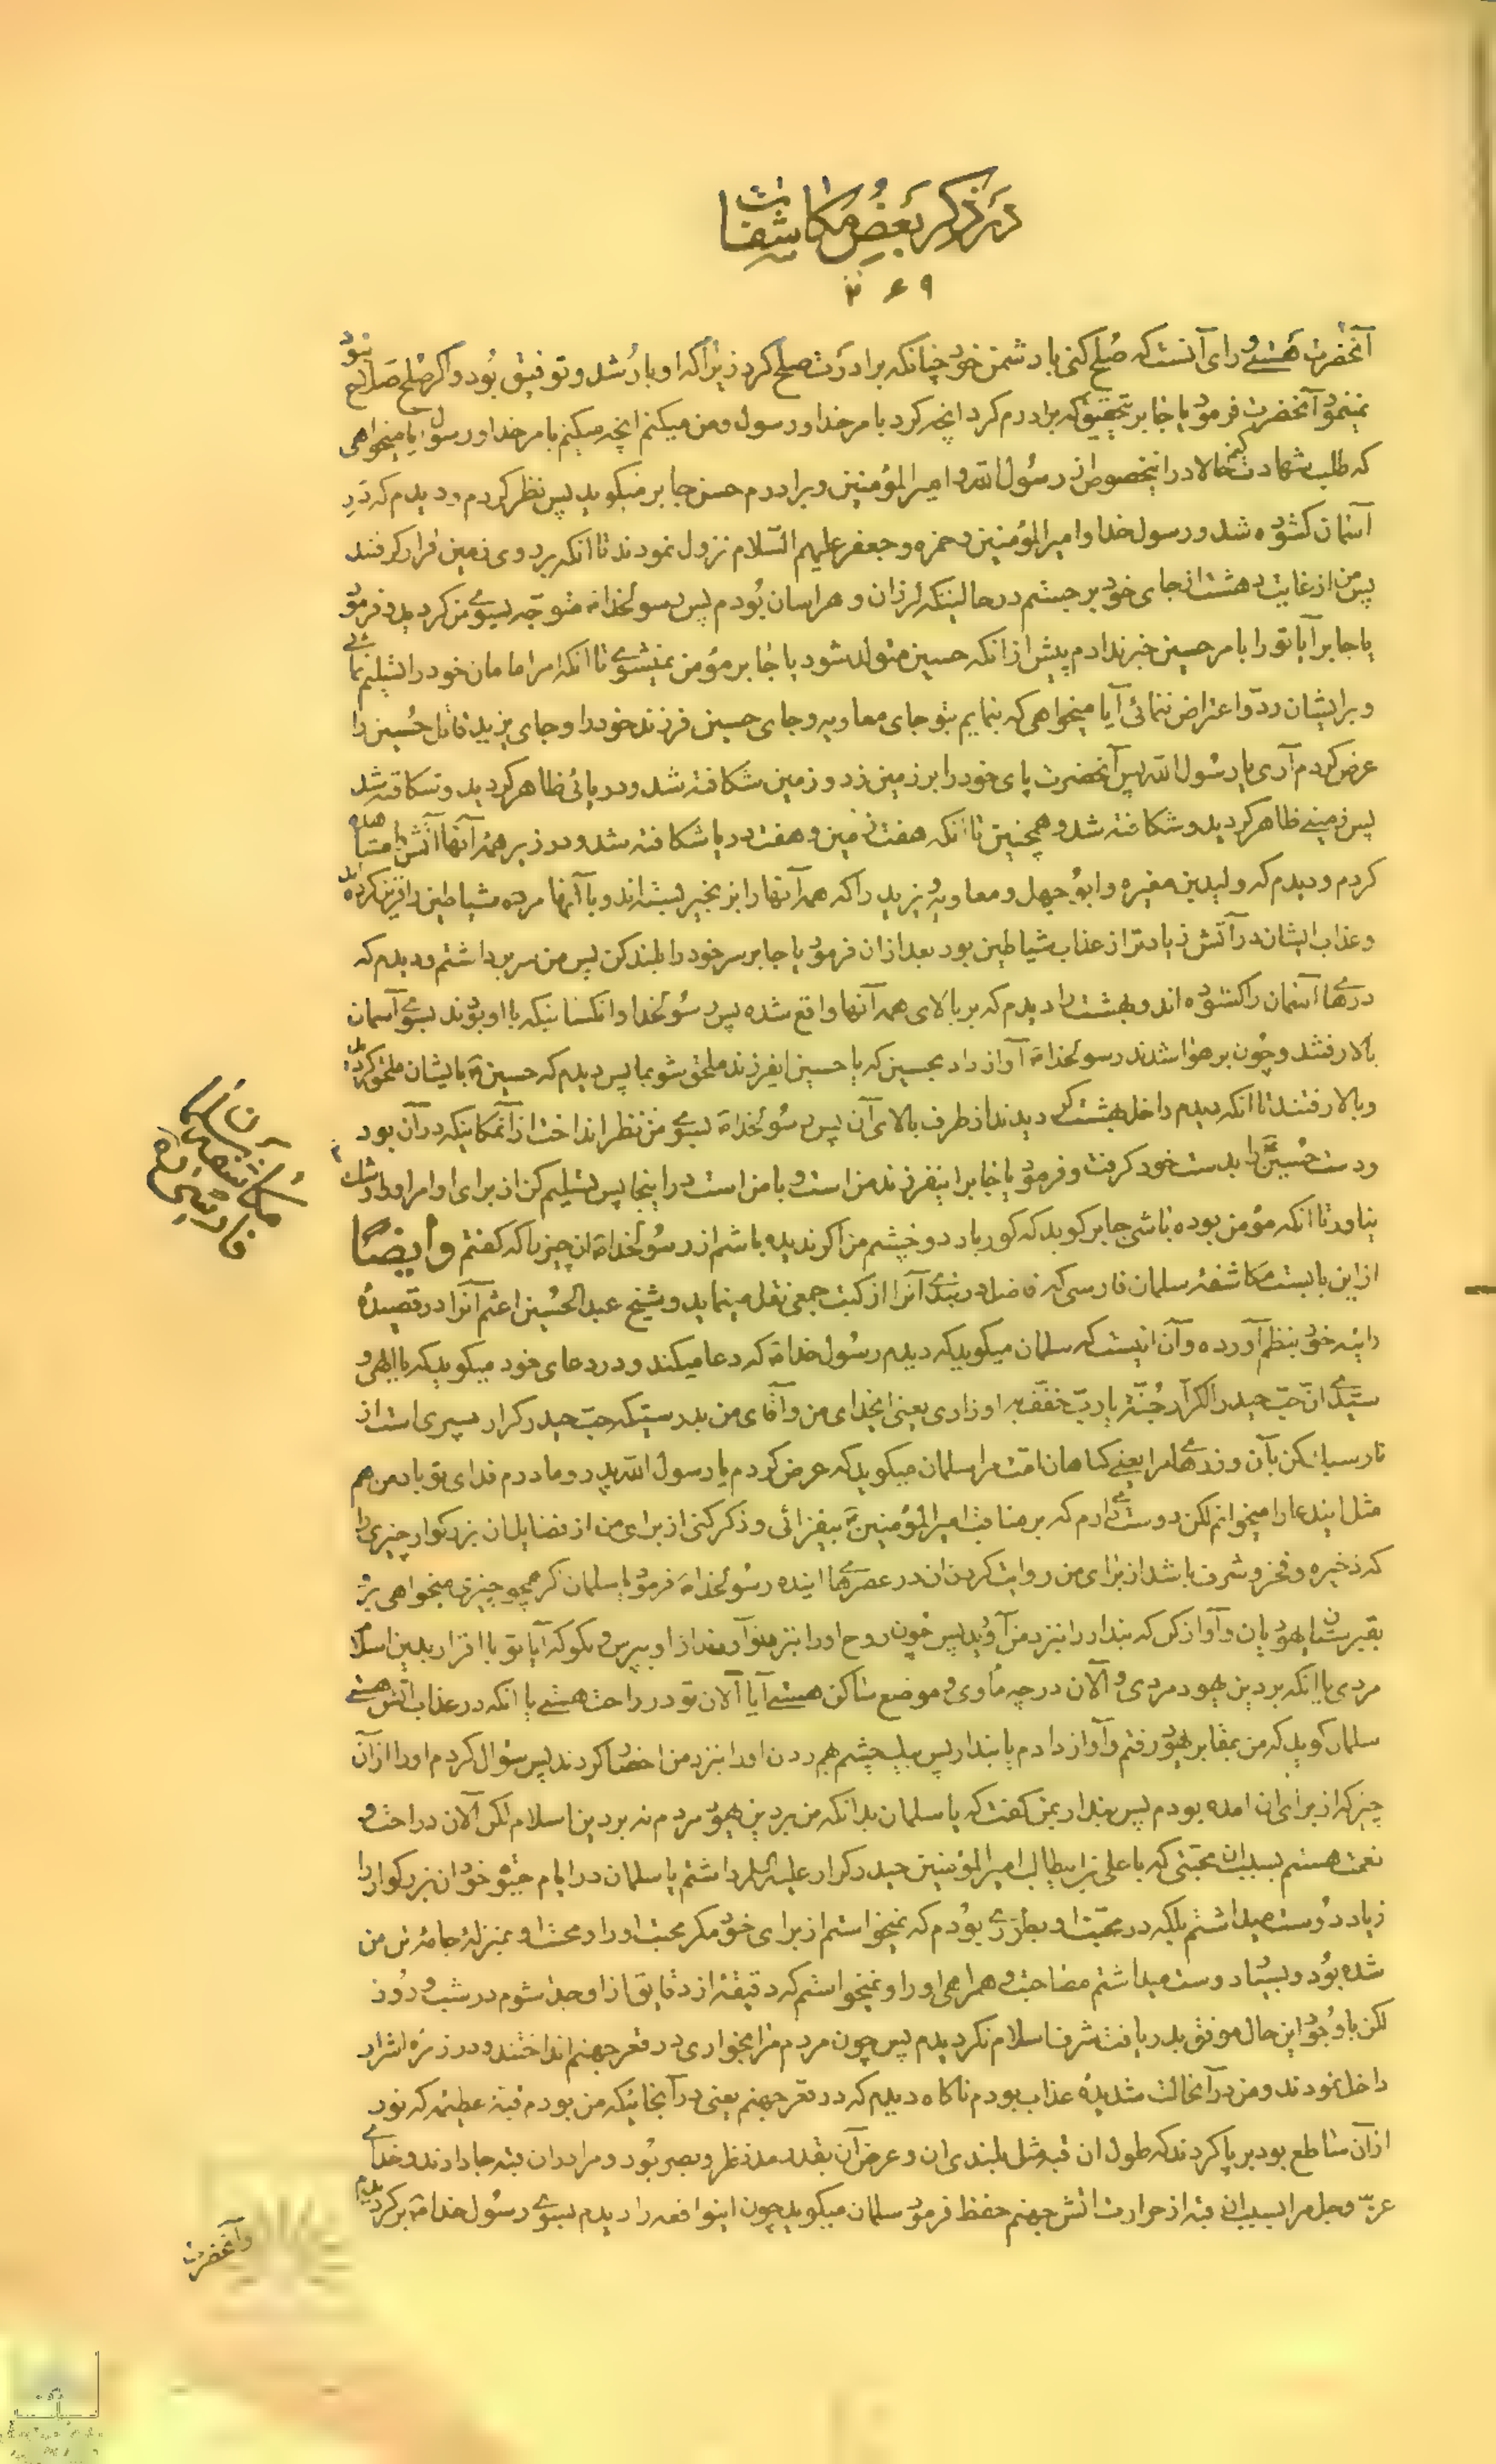 در ذکر بعض مکاشفات
۲۶۹
آنحضرت هستے و رای آنست که صلح کنی با دشمن خود چنانکه برادرت صلح کرد زیراکه او بارُشد و توفیق بود و اکر صلح صلاح نبود
نمینمود آنحضرت فرمود یا جابر بتحقیق که برادرم کرد انچه کرد بامر خدا و رسول و من میکنم انچه میکنم بامر خدا و رسول ایا میخواهی
که طلب شهادت کنم حالا در اینخصوص از رسول الله و امیرالمؤمنین و برادرم حسن جابر میکوید پس نظر کردم و دیدم که درِ
آسمان کشوده شد و رسول خدا و امیرالمؤمنین و حمزه و جعفر علیهم السّلام نزول نمودند تا انکه بر روی زمین قرار کرفتند
پس من از غایت دهشت از جای خود برجستم در حالتیکه لرزان و هراسان بودم پس رسولخداص متوجّه بسوے من کردید و فرمود
یا جابر آیا تو را بامر حسین خبر ندادم پیش از انکه حسین متولد شود یا جابر مؤمن نمیشوے تا انکه امر امامان خود را تسلیم نمائے
و بر ایشان ردّ و اعتراض ننمائی آیا میخواهی که بنمایم بتو جای معاویه و جای حسین فرزند خود را و جای یزید قاتل حسین را
عرض کردم آری یا رسول الله پس آنحضرت پای خود را بر زمین زد و زمین شکافته شد و دریائی ظاهر کردید و شکافته شد
پس زمینے ظاهر کردید و شکافته شد و همچنین تا انکه هفت زمین و هفت دریا شکافته شد و در زیر همهٔ آنها آتش را مشاهده
کردم و دیدم که ولید بن مغیره و ابو جهل و معاویه و یزید را که همه آنها را بزنجیر بسته‌اند و با آنها مرده شیاطین را قرین کرده‌اند
و عذاب ایشان در آتش زیادتر از عذاب شیاطین بود بعد از ان فرمود یا جابر سر خود را بلند کن پس من سر برداشتم و دیدم که
درهاے آسمان را کشوده اند و بهشت را دیدم که بر بالای همه آنها واقع شده پس رسولخدا و انکسانیکه با او بودند بسوے آسمان
بالا رفتند و چون بر هوا شدند رسولخداص آواز داد بحسین که یا حسین ایفرزند ملحق شو بما پس دیدم که حسین ع بایشان ملحق کردید
و بالا رفتند تا انکه دیدم داخل بهشت کردیدند از طرف بالای آن پس رسولخداص بسوے من نظر انداخت از آنمکانیکه در آن بود
و دست حسین ع را بدست خود کرفت و فرمود یا جابر اینفرزند من است و با من است در اینجا پس تسلیم کن از برای او امر او را و شک
نیاور تا انکه مؤمن بوده باشی جابر کوید که کور باد دو چشم من اکر ندیده باشم از رسولخداص ان چیزیرا که کفتم وایضًا
از این بابست مکاشفهٔ سلمان فارسی که فاضل دربندے آنرا از کتب جمعی نقل مینماید و شیخ عبدالحسین اعثم آنرا در قصیدهٔ
رائیه خود بنظم آورده و آن اینست که سلمان میکوید که دیدم رسول خداص که دعا میکند و در دعای خود میکوید که یا الهی و
سیّدے انّ حبّ حیدر الکرار جُنّة یا ربّ خفّف به اوزاری یعنی ایخدای من و آقای من بدرستیکه حبّ حیدر کرار سپری است از
نار سبک کن بآن وزرهاے مرا یعنے کناهان امّت مرا سلمان میکوید که عرض کردم یا رسول الله پدر و مادرم فدای تو باد من هم
مثل ایندعا را میخوانم لکن دوست میدارم که بر مناقب امیرالمؤمنین ع بیفزائی و ذکر کنی از برای من از فضایل ان بزرکوار چیزی را
که ذخیره و فخر و شرف باشد از برای من روایت کردن ان در عصرهاے اینده رسولخداص فرمود یا سلمان اکر همچو چیزی میخواهی برو
بقبرستان یهودیان و آواز کن که بندار را نیزد من آورید پس چون روح او را نزد تو آوردند از او بپرس و بکو که آیا تو با اقرار بدین اسلام
مردی یا انکه بر دین یهود مردی و الآن در چه مأوی و موضع ساکن هستے آیا الآن تو در راحت هستے یا انکه در عذاب آتش هستے
سلمان کوید که من بمقابر یهود رفتم و آواز دادم یا بندار پس بیک چشم هم زدن او را بنزد من احضار کردند پس سؤال کردم او را از آن
چیز که از برای ان امده بودم پس بندار بمن کفت که یا سلمان بدانکه من بر دین یهود مردم نه بر دین اسلام لکن الآن در راحت و
نعمت هستم بسبب ان محبّتی که با علی بن ابیطالب امیرالمؤمنین حیدر کرار علیه السلام داشتم یا سلمان در ایام حیوة خود ان بزرکوار را
زیاد دوست میداشتم بلکه در محبّت او بطرزے بودم که نمیخواستم از برای خود مکر محبت او را و محبت او بمنزلهٔ جامهٔ تن من
شده بود و بسیار دوست میداشتم مصاحبت و همراهی او را و نمیخواستم که دقیقهٔ از دقایق از او جدا شوم در شب و روز
لکن با وجود این حال موفق بدریافت شرف اسلام نکردیدم پس چون مردم مرا بخواری در قعر جهنم انداختند و در زمرهٔ اشرار
داخل نمودند و من در آنحالت شدیدهٔ عذاب بودم ناکاه دیدم که در قعر جهنم یعنی در آنجائیکه من بودم قبّهٔ عظیمه که نور
از آن ساطع بود برپا کردند که طول ان قبه مثل بلندی ان و عرض آن بقدر مد نظر و بصر بود و مرا در ان قبه جا دادند و خداے
عزّ و جل مرا بسبب ان قبه از حرارت اتش جهنم حفظ فرمود سلمان میکوید چون اینواقعه را دیدم بسوے رسول خداص برکردیدم
وآنحضرت
مکاشفه